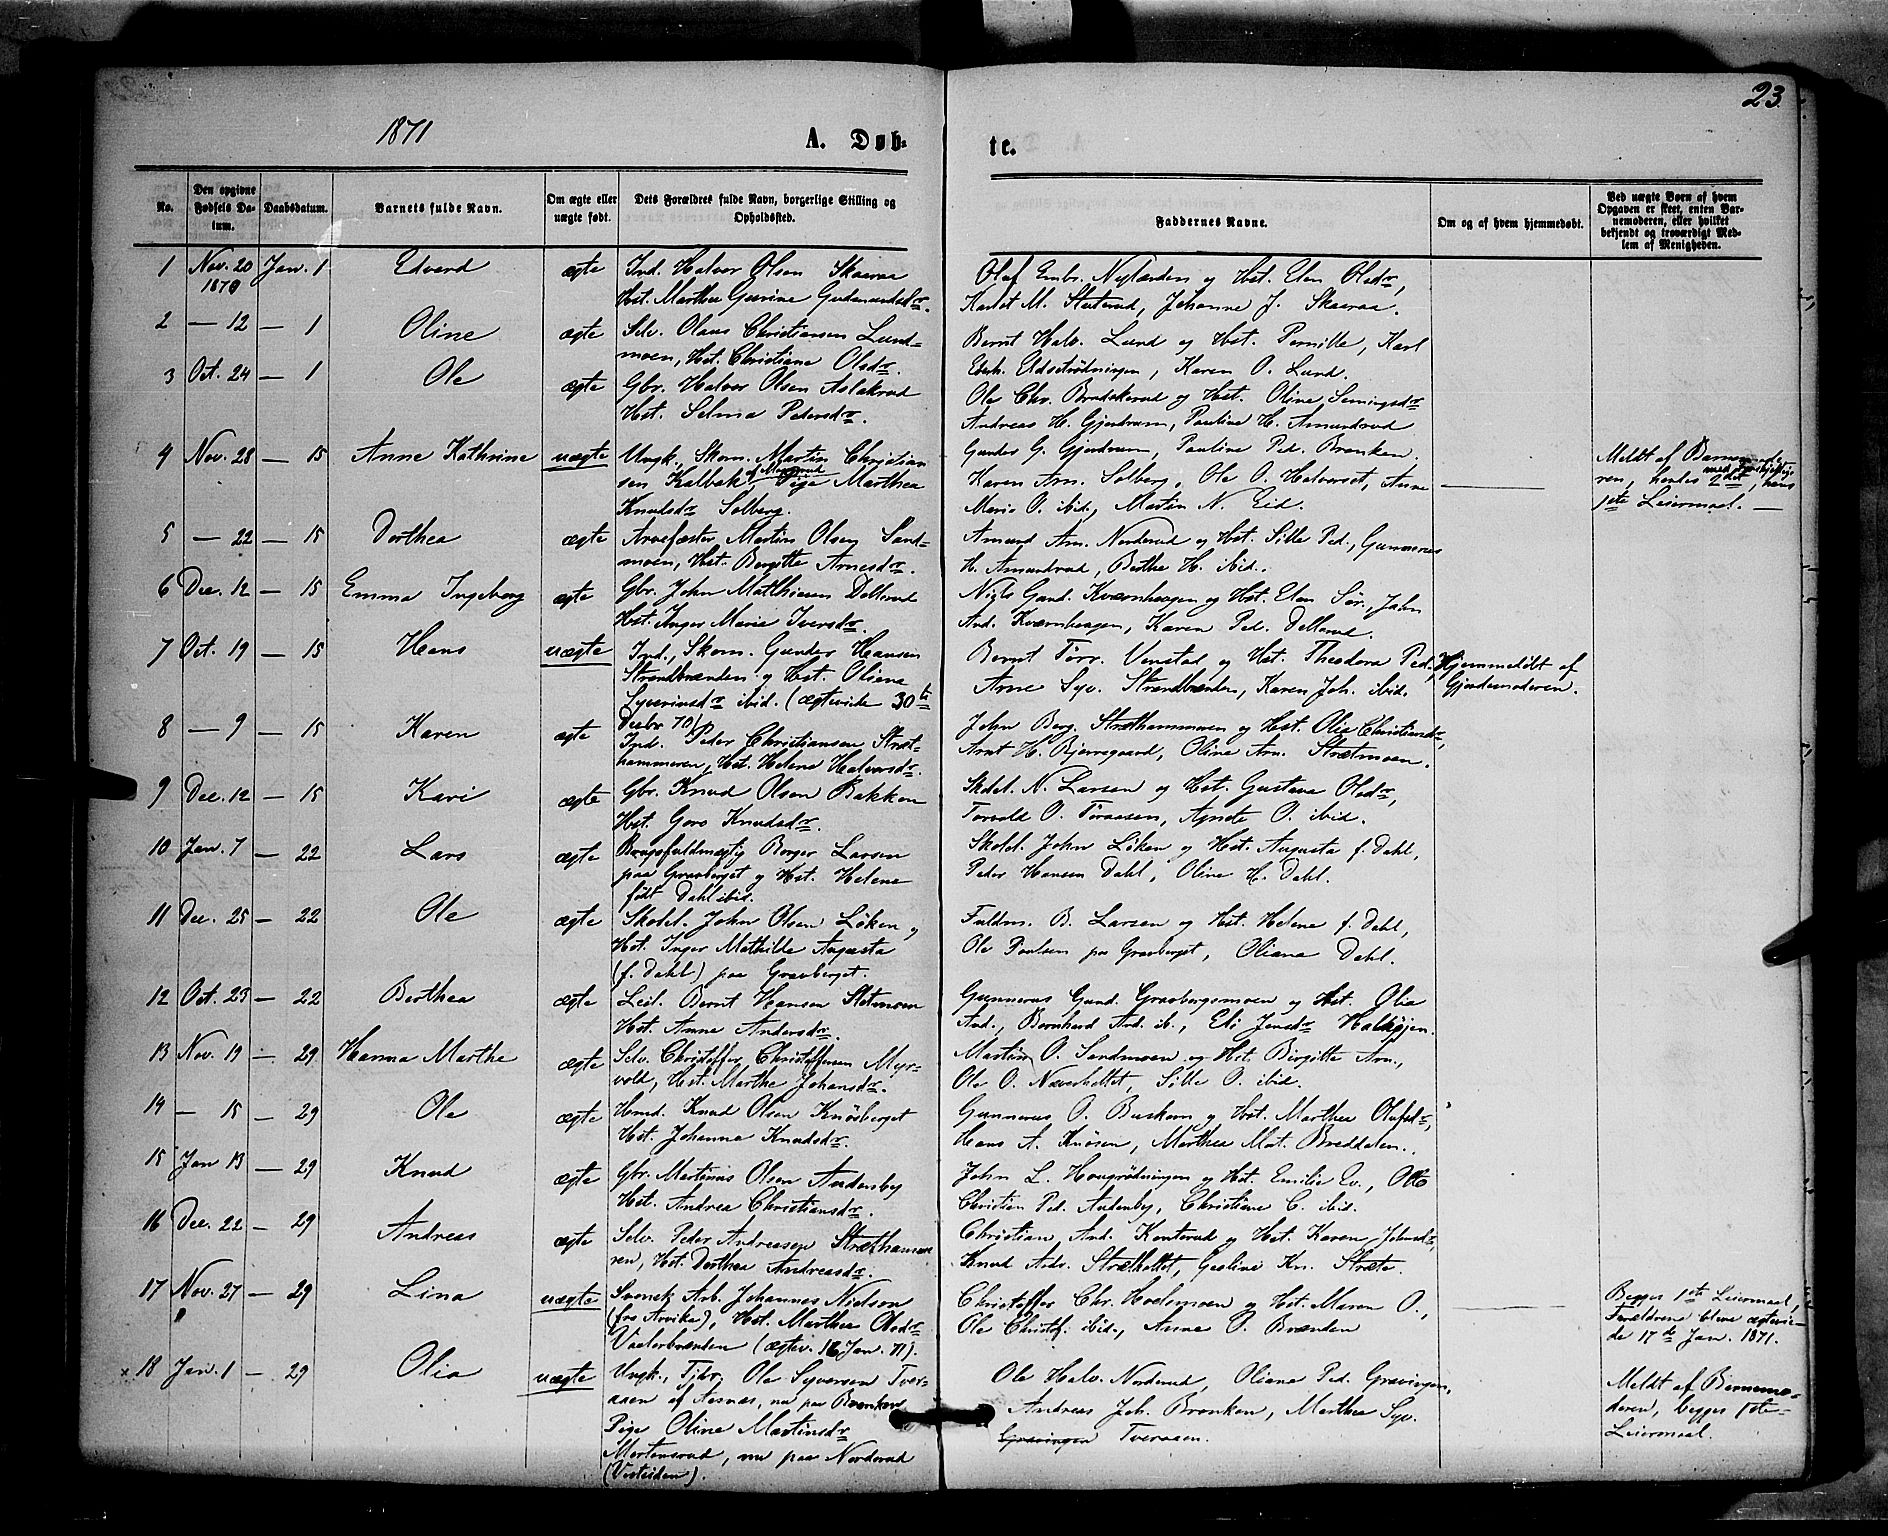 23
1871
A. Døb-
te.
No.
Den opgivne Fødsels Datum.
Daabsdatum.
Barnets fulde Navn.
Om ægte eller uægte født.
Dets Forældres fulde Navn, borgerlige Stilling og Opholdssted.
Faddernes Navne.
Om og af hvem hjemmedøbt.
Ved uægte Børn af hvem Opgaven er skeet, enten Barnemoderen, eller hvilket bekjendt og troværdigt Medlem af Menigheden.
1 Nov. 20 1870 Jan. 1 Edvard ægte Ind. Halvor Olsen Skaaraa
Hst. Marthea Gurine Gudmundsdr.
Olaf Embr. Nylanden og Hst. Elen Olsdr,
M. Stuterud, Johanne J. Skaaraa.
2 — 12 — 1 Oline ægte Selv. Olaus Christiansen Lund-
moen, Hst. Christiane Olsdr.
Bernt Halv. Lund og Hst. Pernille, Karl
Udsetrødningen, Karen O. Lund.
3 Oct. 24 — 1 Ole ægte Gbr. Halvor Olsen Aslakrud
Hst. Selma Pedersdr.
Ole Chr. Bradskerud og Hst. Oline Semingsdr
Andreas H. Gjerdrum, Pauline H. Amundrud
4 Nov. 28 — 15 Anne Kathrine uægte Ungk. Skom. Martin Christian
sen Kalbak, Pige Marthea
Knudsdr Solberg.
Gunder G. Gjerdrum, Pauline Ped. Brenken.
Karen Arn. Solberg, Ole O. Halvorset, Anne
Marie O. ibid, Martin N. Eid.
Meldt af Barnemode-
ren, hendes 2det, hans
1ste Leiermaal. —
5 — 22 — 15 Dorthea ægte Arvefæster Martin Olsen Sand-
moen, Hst. Bergitte Arnesdr.
Amund Arn. Norderud og Hst. Sille Ped., Gunnerus
H. Amundrud, Berthe H. ibid.
6 Dec. 12 — 15 Emma Ingeborg ægte Gbr. John Matthisen Dellerud
Hst. Inger Marie Iversdr.
Niels Gund. Kværnhaugen og Hst. Elen Sør., John
And. Kværnhaugen, Karen Ped. Dellerud.
7 Oct. 19 — 15 Hans uægte Ind., Skom. Gunder Hansen
Strandbrænden og Hst. Oliana
Syverinsdr ibid. (ægteviede 30te
Decbr 70)
Bernt Törr. Venstad og Hst. Theodora Ped.,
Arne Syv. Strandbrænden, Karen Joh. ibid.
Hjemmedøbt af
Gjordemoderen.
8 — 9 — 15 Karen ægte Ind. Peder Christiansen Stræt-
hammeren, Hst. Helene Halvorsdr.
John Berg. Stræthammeren og Hst. Olia Christiansdr,
Arnt H. Bjerregaard, Oline Arn. Strætmoen.
9 Dec. 12 — 15 Kari ægte Gbr. Knud Olsen Bakken
Hst. Goro Knudsdr.
Skolel. N. Larsen og Hst. Gustava Olsdr,
Torvald O. Töraasen, Agnete O. ibid.
10 Jan. 7 — 22 Lars ægte Brugsfuldmægtig Borger Larsen
paa Gravberget og Hst. Helene
født Dahl ibid.
Skolel. John Löken og Hst. Augusta f. Dahl,
Peder Hansen Dahl, Oline H. Dahl.
11 Dec. 25 — 22 Ole ægte Skolel. John Olsen Löken og
Hst. Inger Mathilde Augusta
(f. Dahl) paa Gravberget.
Fuldm. B. Larsen og Hst. Helene f. Dahl,
Ole Poulsen paa Gravberget, Oliana Dahl.
12 Oct. 23 — 22 Berthea ægte Leil. Bernt Hansen Sletmoen
Hst. Anne Andersdr.
Gunnerus Gund. Gravbergsmoen og Hst. Olia
And., Bernhard And. ib., Eli Jensdr Halhøjen.
13 Nov. 19 — 29 Hanna Marthe ægte Selv. Christoffer Christoffersen Myr-
vold, Hst. Marthe Johansdr.
Martin O. Sandmoen og Hst. Birgitte Arn.,
Ole O. Næverholtet, Sille O. ibid.
14 — 15 — 29 Ole ægte Hmd. Knud Olsen Knösberget
Hst. Johanna Knudsdr.
Gunnerus O. Buskom og Hst. Marthea Olufsdr,
Hans A. Knösen, Marthea Mat. Breddalen.
15 Jan 13 — 29 Knud ægte Gbr. Martinus Olsen Audensby
Hst. Andrea Christiansdr.
John L. Haugrødningen og Hst. Emilie Ev., Otto
Christian Ped. Audenby, Christiane C. ibid.
16 Dec. 22 — 29 Andreas ægte Selv. Peder Andreasen Stræthamme
ren, Hst. Dorthea Andreasdr.
Christian And. Konterud og Hst. Karen Johnsdr,
Knud Andr. Stræholtet, Geoline Kn. Stræte.
17 Nov. 27 — 29 Lina uægte Svensk Arb. Johannes Nielson
(fra Arvika), Hst. Marthea Olsdr
Vaalerbrænden (ægtev. 16 Jan. 71).
Christoffer Chr. Hoelsmoen og Hst. Maren O.,
Ole Christf. ibid., Anne O. Brænden
Begges 1ste Leiermaal,
Forældrene bleve ægtevie-
de 17de Jan. 1871.
× 18 Jan. 1 — 29 Olia uægte Ungk., Tjbr. Ole Syversen Tver-
aaen af Aasnæs, nu paa Brænken
Pige Oline Martinsdr
Mortensrud, nu paa Norderud
(Vestsiden).
Ole Halv. Norderud, Oliana Ped. Gravingen,
Andreas Joh. Brenken, Marthea Syv.
Gravingen Tveraaen.
Meldt af Barnemo-
deren, begges 1ste
Leiermaal.